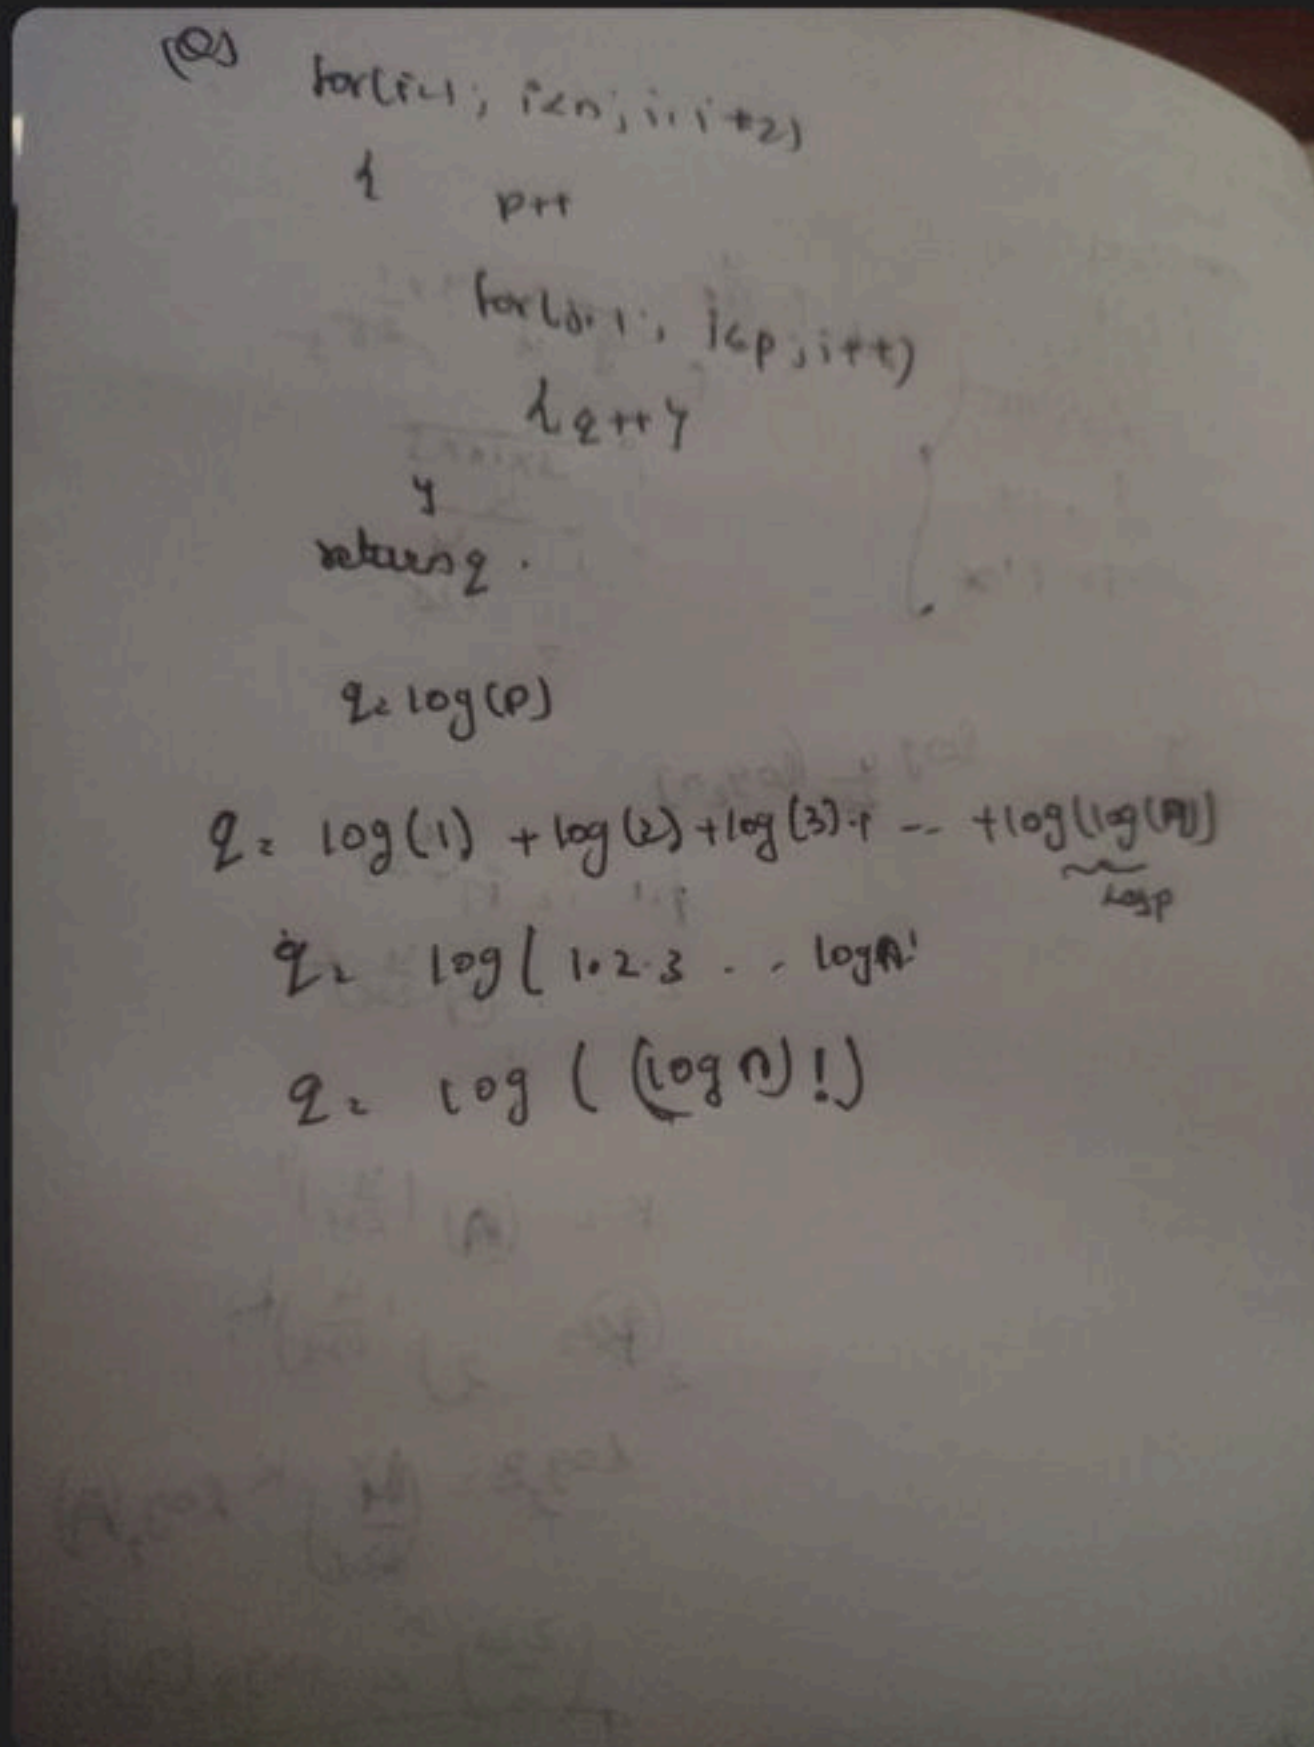 (Q)
for(i=1; i<n; i=i*2)
{
p++
for(j=1; j<p; j++)
{q++}
}
return q.
q = log(p)
q = log(1) + log(2) + log(3) + -- + log(log(n))
log p
q = log( 1.2.3 . . . log n!
q = log ( (log n)!)